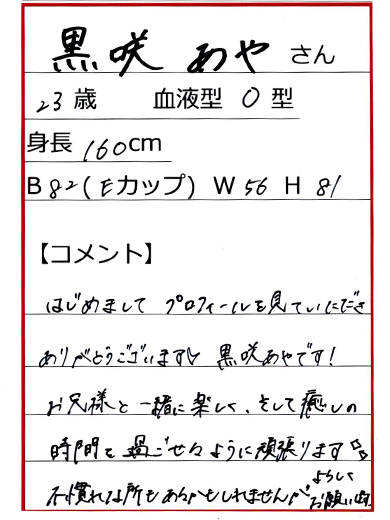 黒咲 あや さん
23 歳 血液型 O 型
身長 160cm
B 82(Eカップ) W 56 H 81
【コメント】
はじめまして プロフィールを見ていただき
ありがとうございます♡ 黒咲あやです!
お兄様と一緒に楽しく、そして癒しの
時間を過ごせるように頑張ります☆
不慣れな所もあるかもしれませんが よろしく
お願いします